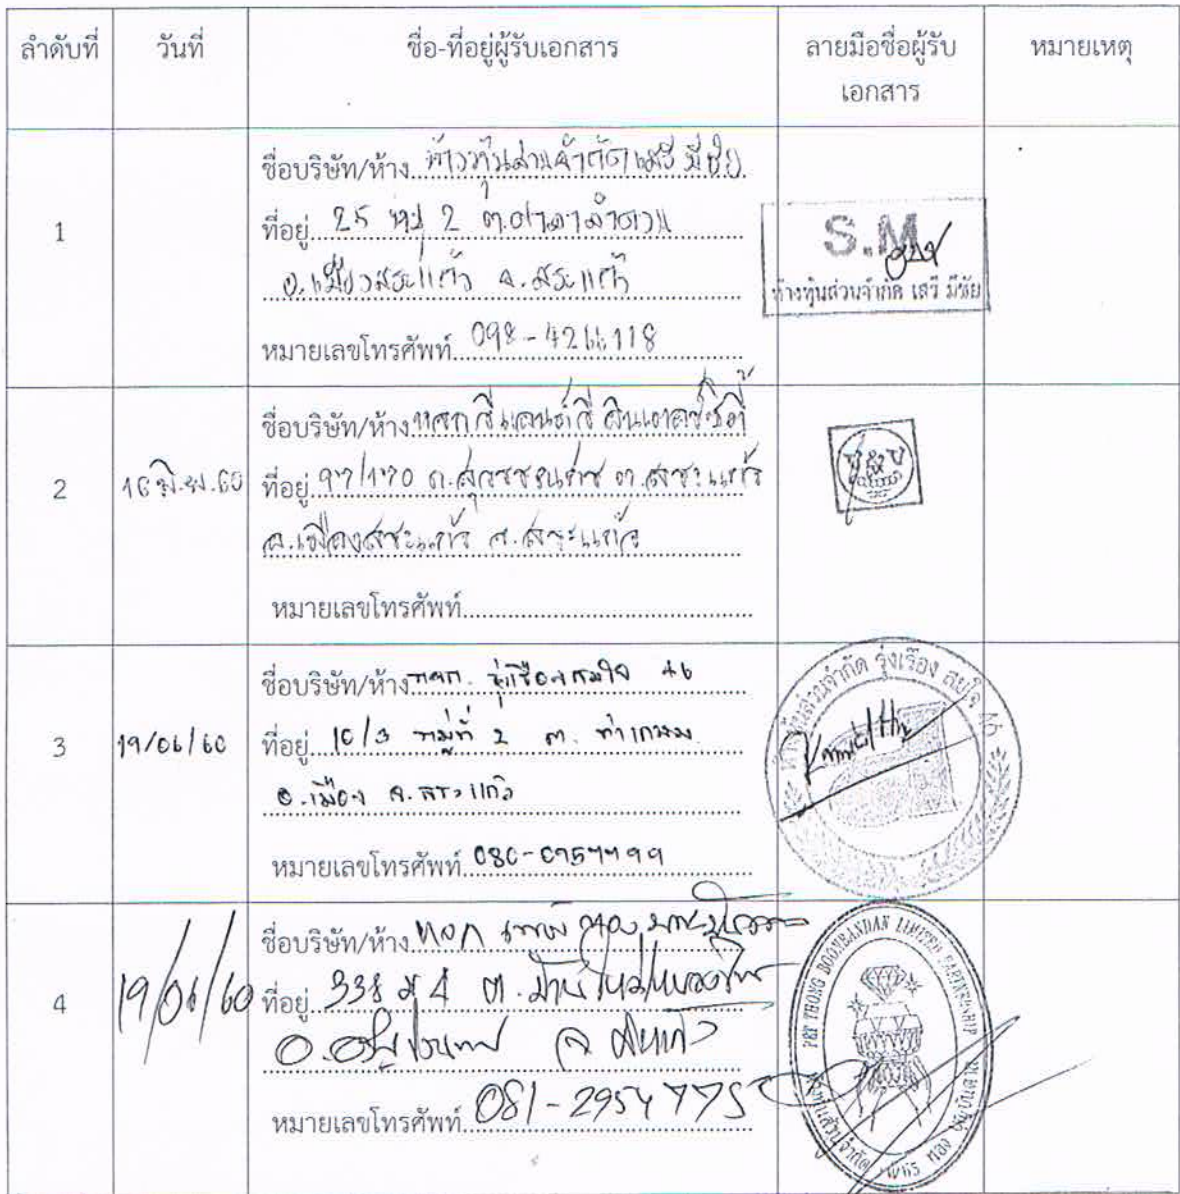 ลำดับที่ วันที่ ชื่อ-ที่อยู่ผู้รับเอกสาร ลายมือชื่อผู้รับ หมายเหตุ
เอกสาร
1
ชื่อบริษัท/ห้าง ห้างหุ้นส่วนจำกัด เสวี มีชัย
ที่อยู่ 25 หมู่ 2 ต.ศาลาลำดวน
อ.เมืองสระแก้ว จ.สระแก้ว
หมายเลขโทรศัพท์ 098-4266118
S.M
ห้างหุ้นส่วนจำกัด เสวี มีชัย
2 16 มิ.ย. 60
ชื่อบริษัท/ห้าง
ที่อยู่ ถ.สุวรรณศร ต.สระแก้ว
อ.เมืองสระแก้ว จ.สระแก้ว
หมายเลขโทรศัพท์
3 19/06/60
ชื่อบริษัท/ห้าง หจก. รุ่งเรืองสมใจ 46
ที่อยู่ 10/3 หมู่ที่ 2 ต. ท่าเกษม
อ.เมือง จ.สระแก้ว
หมายเลขโทรศัพท์
ห้างหุ้นส่วนจำกัด รุ่งเรือง สมใจ 46
4 19/06/60
ชื่อบริษัท/ห้าง หจก
ที่อยู่ 338 ม 4 ต. บ้านใหม่หนองไทร
อ.อรัญประเทศ จ.สระแก้ว
หมายเลขโทรศัพท์ 081-2954775
PET THONG BOONBANDAN LIMITED PARTNERSHIP
ห้างหุ้นส่วนจำกัด เพชร ทอง บุญบันดาล